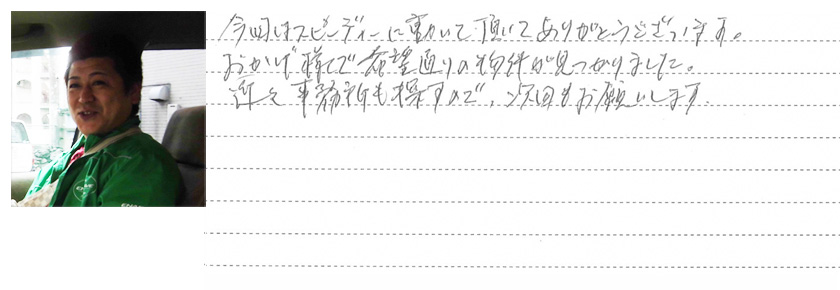 今回はスピーディーに動いて頂いてありがとうございます。
おかげ様で希望通りの物件が見つかりました。
近々事務所も探すので、次回もお願いします。